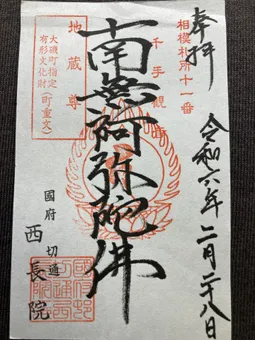 奉拝
相模札所十一番
令和六年二月二十八日
千手観音
南無阿弥陀佛
地蔵尊
大磯町指定
有形文化財
(町重文)
国府
切通
西長院